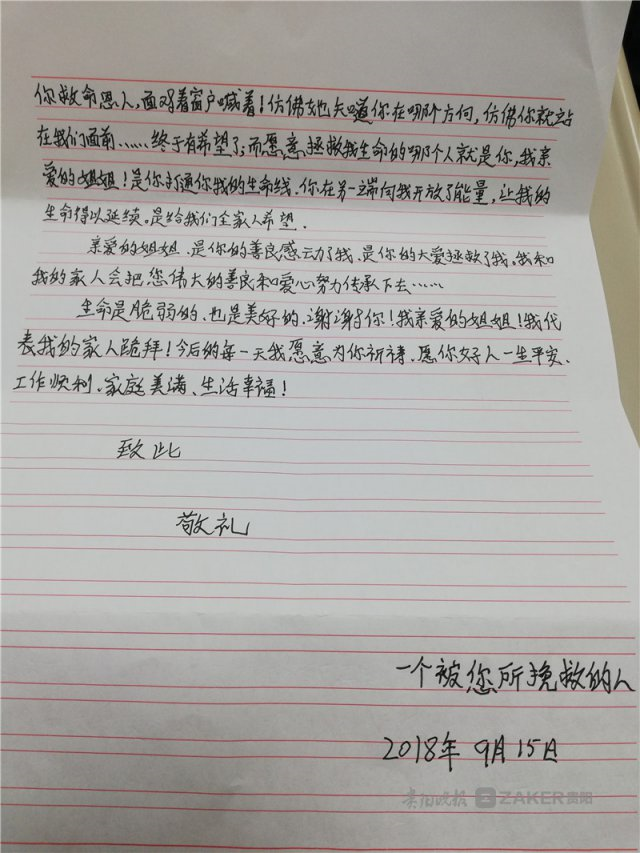 你救命恩人,面对着窗户喊着!仿佛她知道你在哪个方向,仿佛你就站
在我们面前……终于有希望了,而愿意拯救我生命的哪个人就是你,我亲
爱的姐姐!是你打通你我的生命线.你在另一端向我开放了能量,让我的
生命得以延续.是给我们全家人希望.
亲爱的姐姐.是你的善良感动了我.是你的大爱拯救了我.我和
我的家人会把您伟大的善良和爱心努力传承下去……
生命是脆弱的.也是美好的.谢谢你!我亲爱的姐姐!我代
表我的家人跪拜!今后的每一天我愿意为你祈祷、愿你好人一生平安、
工作顺利、家庭美满、生活幸福!
致此
敬礼
一个被您所挽救的人
2018年 9月15日
贵阳晚报 ZAKER贵阳